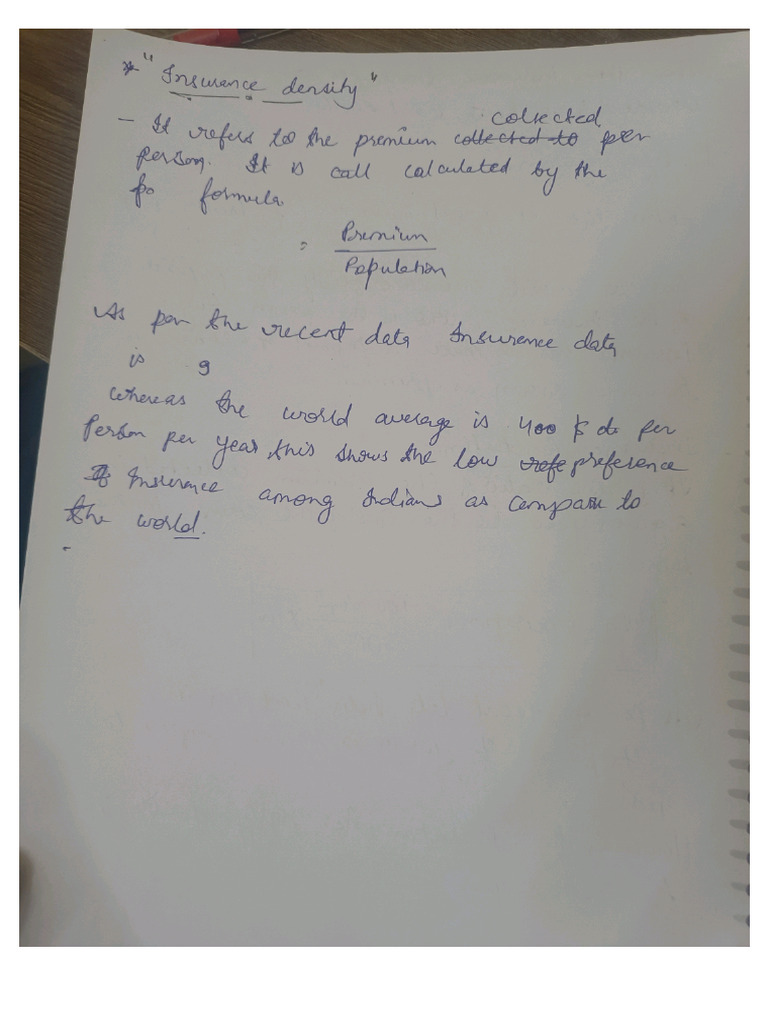 * "Insurance density"
collected
- It refers to the premium collected to per
person. It is call calculated by the
fo formula
= Premium
Population
As per the recent data Insurence data
is 9
whereas the world average is 400 $ do per
Person per year, this shows the low refe preference
If Insurence among Indians as compare to
the world.